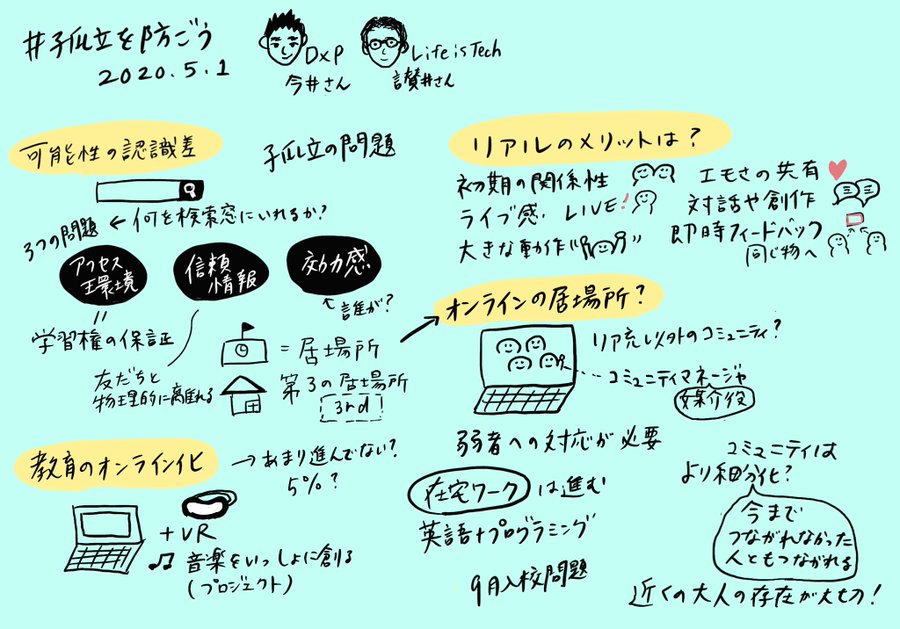 #孤立を防ごう
2020.5.1
DxP
今井さん
Life is Tech
讃井さん
可能性の認識差
孤立の問題
3つの問題 ← 何を検索窓にいれるか?
アクセス
環境
信頼
情報
効力感
誰が?
学習権の保証
友だちと
物理的に離れる
= 居場所
第3の居場所
3rd
教育のオンライン化
→ あまり進んでない?
5%?
+VR
♫ 音楽をいっしょに創る
(プロジェクト)
リアルのメリットは?
初期の関係性
ライブ感. LIVE!
大きな動作
エモさの共有
対話や創作
即時フィードバック
同じ物へ
オンラインの居場所?
リア充以外のコミュニティ?
コミュニティマネージャ
媒介役
弱者への対応が必要
在宅ワーク は進む
英語+プログラミング
9月入校問題
コミュニティは
より細分化?
今まで
つながれなかった
人ともつながれる
近くの大人の存在が大切!